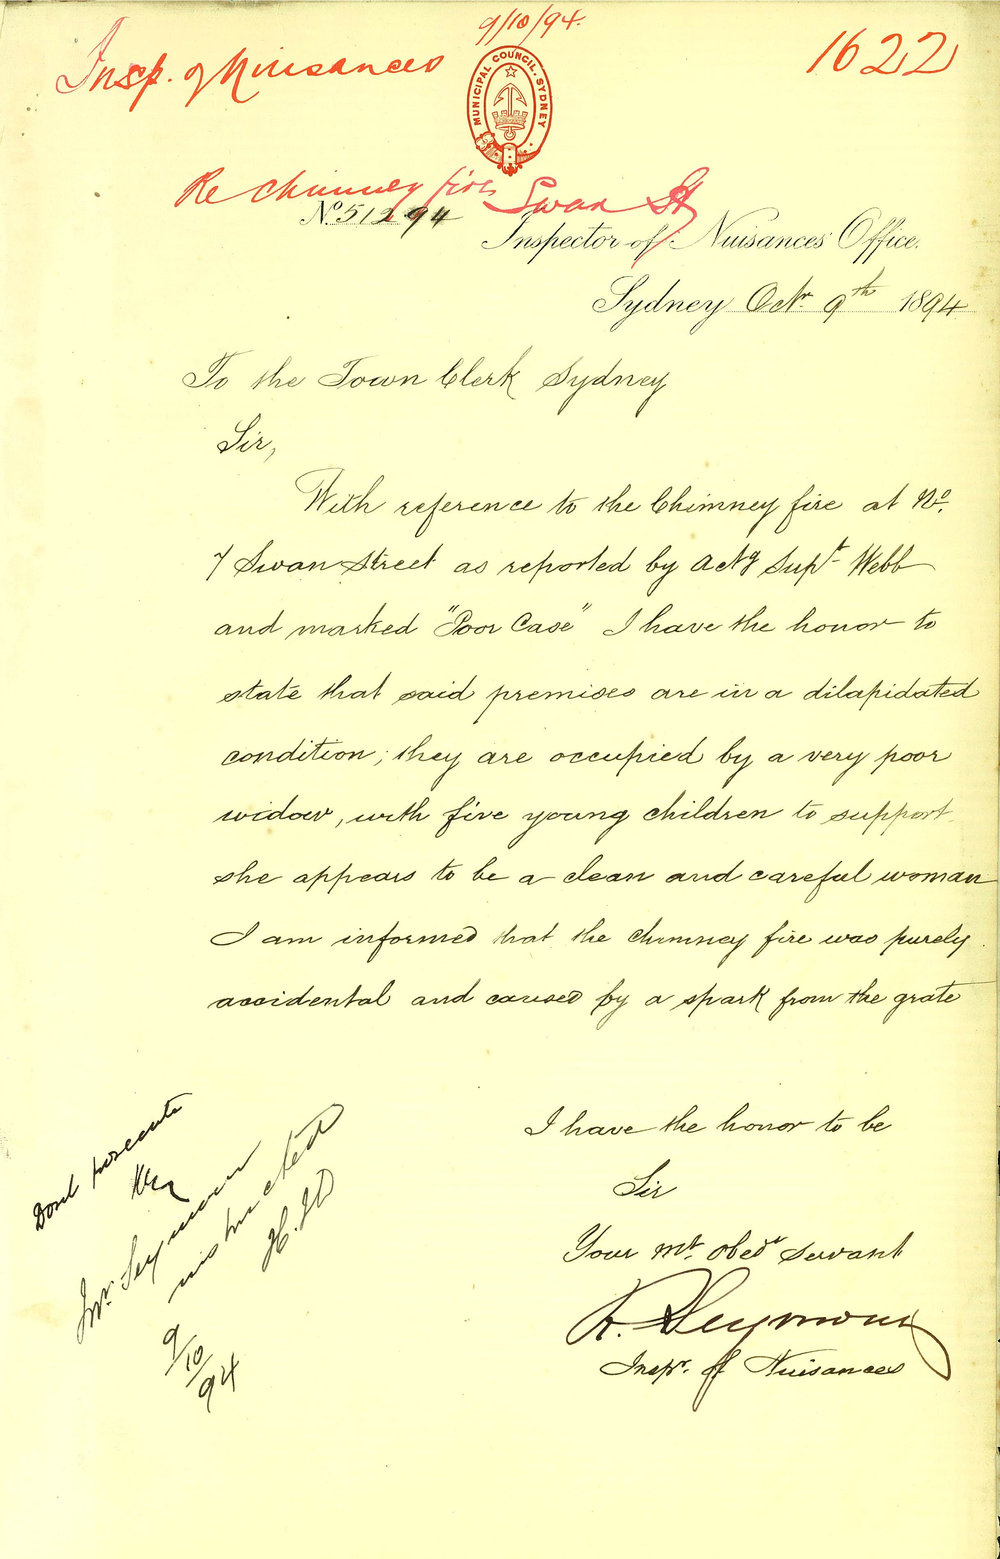 9/10/94.
Insp. of Nuisances
1622
MUNICIPAL COUNCIL. SYDNEY
Re Chimney fire Swan St
No. 512 94
Inspector of Nuisances Office.
Sydney Octr 9th 1894
To the Town Clerk Sydney
Sir,
With reference to the Chimney fire at No.
7 Swan Street as reported by actg Supt Webb
and marked "Poor Case" I have the honor to
state that said premises are in a dilapidated
condition; they are occupied by a very poor
widow, with five young children to support
she appears to be a clean and careful woman
I am informed that the chimney fire was purely
accidental and caused by a spark from the grate
I have the honor to be
Sir
Your mt. obedt servant
R. Seymour
Inspr. of Nuisances
Dont prosecute
Mr. Seymour
instructed
9/10/94